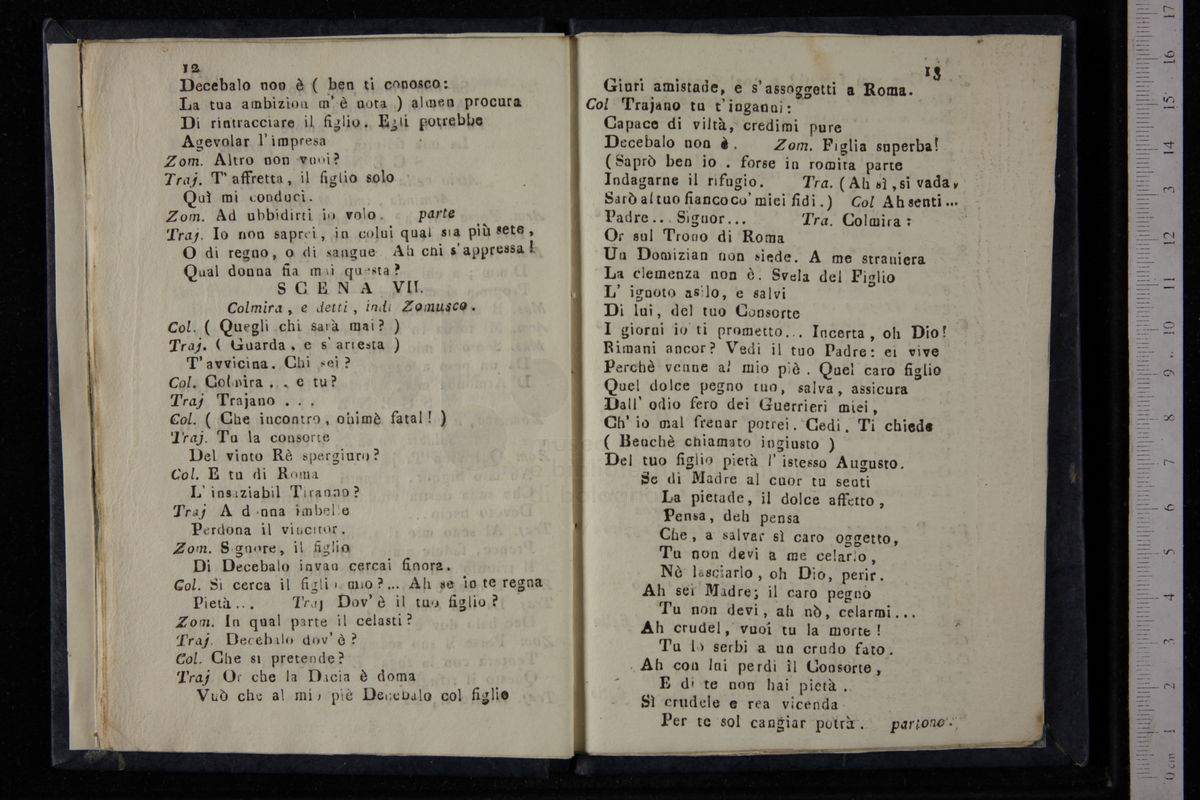 12
Decebalo non è ( ben ti conosco:
La tua ambizion m'è nota ) almen procura
Di rintracciare il figlio. Egli potrebbe
Agevolar l'impresa
Zom. Altro non vuoi?
Traj. T'affretta, il figlio solo
Quì mi conduci.
Zom. Ad ubbidirti io volo. parte
Traj. Io non saprei, in colui qual sia più sete,
O di regno, o di sangue Ah chi s'appressa!
Qual donna fia mai questa?
SCENA VII.
Colmira, e detti, indi Zomusco.
Col. ( Quegli chi sarà mai? )
Traj. ( Guarda, e s'arresta )
T'avvicina. Chi sei?
Col. Colmira . . e tu?
Traj Trajano . . .
Col. ( Che incontro, ohimè fatal! )
Traj. Tu la consorte
Del vinto Rè spergiuro?
Col. E tu di Roma
L'insaziabil Tiranno?
Traj A donna imbelle
Perdona il vincitor.
Zom. Signore, il figlio
Di Decebalo invan cercai finora.
Col. Si cerca il figlio mio?... Ah se in te regna
Pietà... Traj Dov'è il tuo figlio?
Zom. In qual parte il celasti?
Traj. Decebalo dov'è?
Col. Che si pretende?
Traj Or che la Dacia è doma
Vuò che al mio piè Decebalo col figlio
13
Giuri amistade, e s'assoggetti a Roma.
Col Trajano tu t'inganni:
Capace di viltà, credimi pure
Decebalo non è. Zom. Figlia superba!
( Saprò ben io . forse in romita parte
Indagarne il rifugio. Tra. ( Ah sì, si vada,
Sarò al tuo fianco co' miei fidi. ) Col Ah senti...
Padre... Signor... Tra. Colmira:
Or sul Trono di Roma
Un Domizian non siede. A me straniera
La clemenza non è. Svela del Figlio
L'ignoto asilo, e salvi
Di lui, del tuo Consorte
I giorni io ti prometto... Incerta, oh Dio!
Rimani ancor? Vedi il tuo Padre: ei vive
Perchè venne al mio piè. Quel caro figlio
Quel dolce pegno tuo, salva, assicura
Dall'odio fero dei Guerrieri miei,
Ch'io mal frenar potrei. Cedi. Ti chiede
( Benchè chiamato ingiusto )
Del tuo figlio pietà l'istesso Augusto.
Se di Madre al cuor tu senti
La pietade, il dolce affetto,
Pensa, deh pensa
Che, a salvar sì caro oggetto,
Tu non devi a me celarlo,
Nè lasciarlo, oh Dio, perir.
Ah sei Madre; il caro pegno
Tu non devi, ah nò, celarmi...
Ah crudel, vuoi tu la morte!
Tu lo serbi a un crudo fato.
Ah con lui perdi il Consorte,
E di te non hai pietà.
Sì crudele e rea vicenda
Per te sol cangiar potrà. partono.